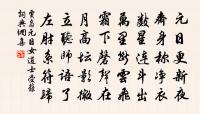 元日更新夜
齋身稱淨衣
數星連斗出
萬里斷雲飛
霜下磬聲在
月高壇影微
立聽師語了
左肘系符歸
賈島元日女道士受籙
詞典網集